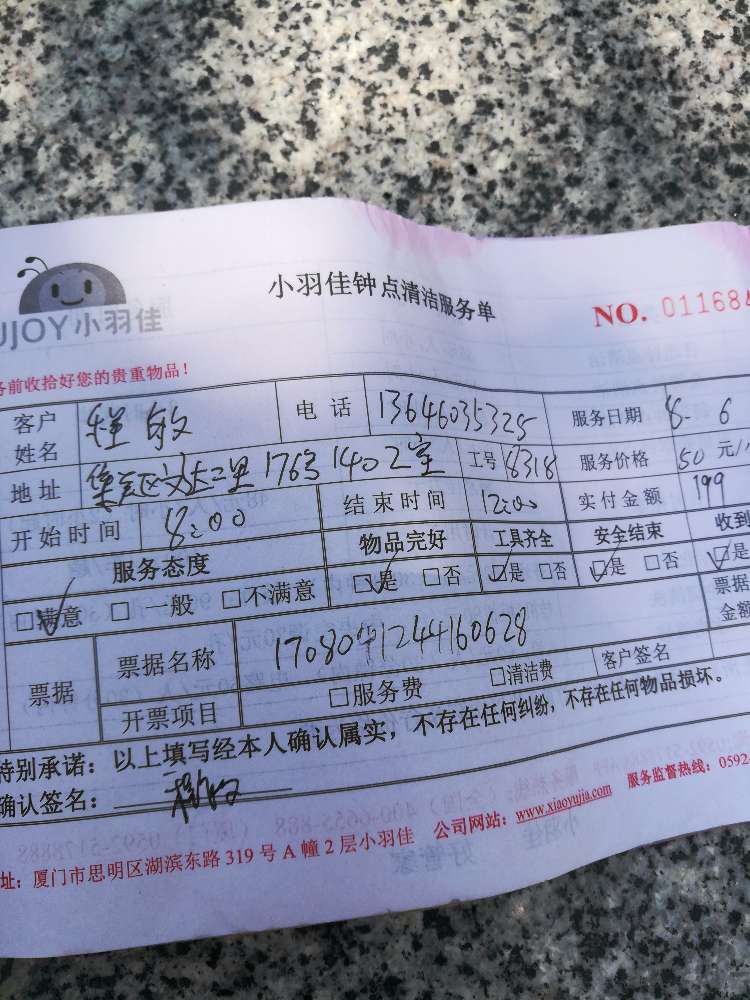 UJOY小羽佳
小羽佳钟点清洁服务单
NO. 011684
务前收拾好您的贵重物品！
客户姓名 程敏 电话 13646035325 服务日期 8-6
地址 集美区 二里176号1402室 工号 8318 服务价格 50元/
开始时间 8:00 结束时间 12:00 实付金额 199
服务态度 物品完好 工具齐全 安全结束 收到
☑满意 □一般 □不满意 ☑是 □否 ☑是 □否 ☑是 □否 ☑是
票据 票据名称 1708041244160628 票据金额
开票项目 □服务费 □清洁费 客户签名
特别承诺：以上填写经本人确认属实，不存在任何纠纷，不存在任何物品损坏。
确认签名：
址：厦门市思明区湖滨东路319号A幢2层小羽佳 公司网站：www.xiaoyujia.com 服务监督热线：0592-